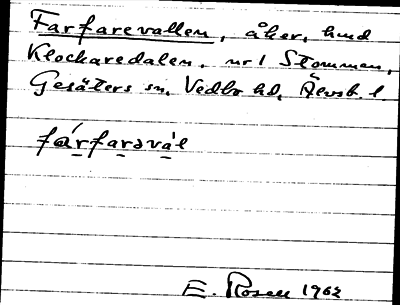 Farfarevallen, åker, hmd
Klockaredalen, nr 1 Stommen,
Gesäters sn, Vedbo hd, Älvsb. l.
fárfarəvàl
E. Rosell 1962